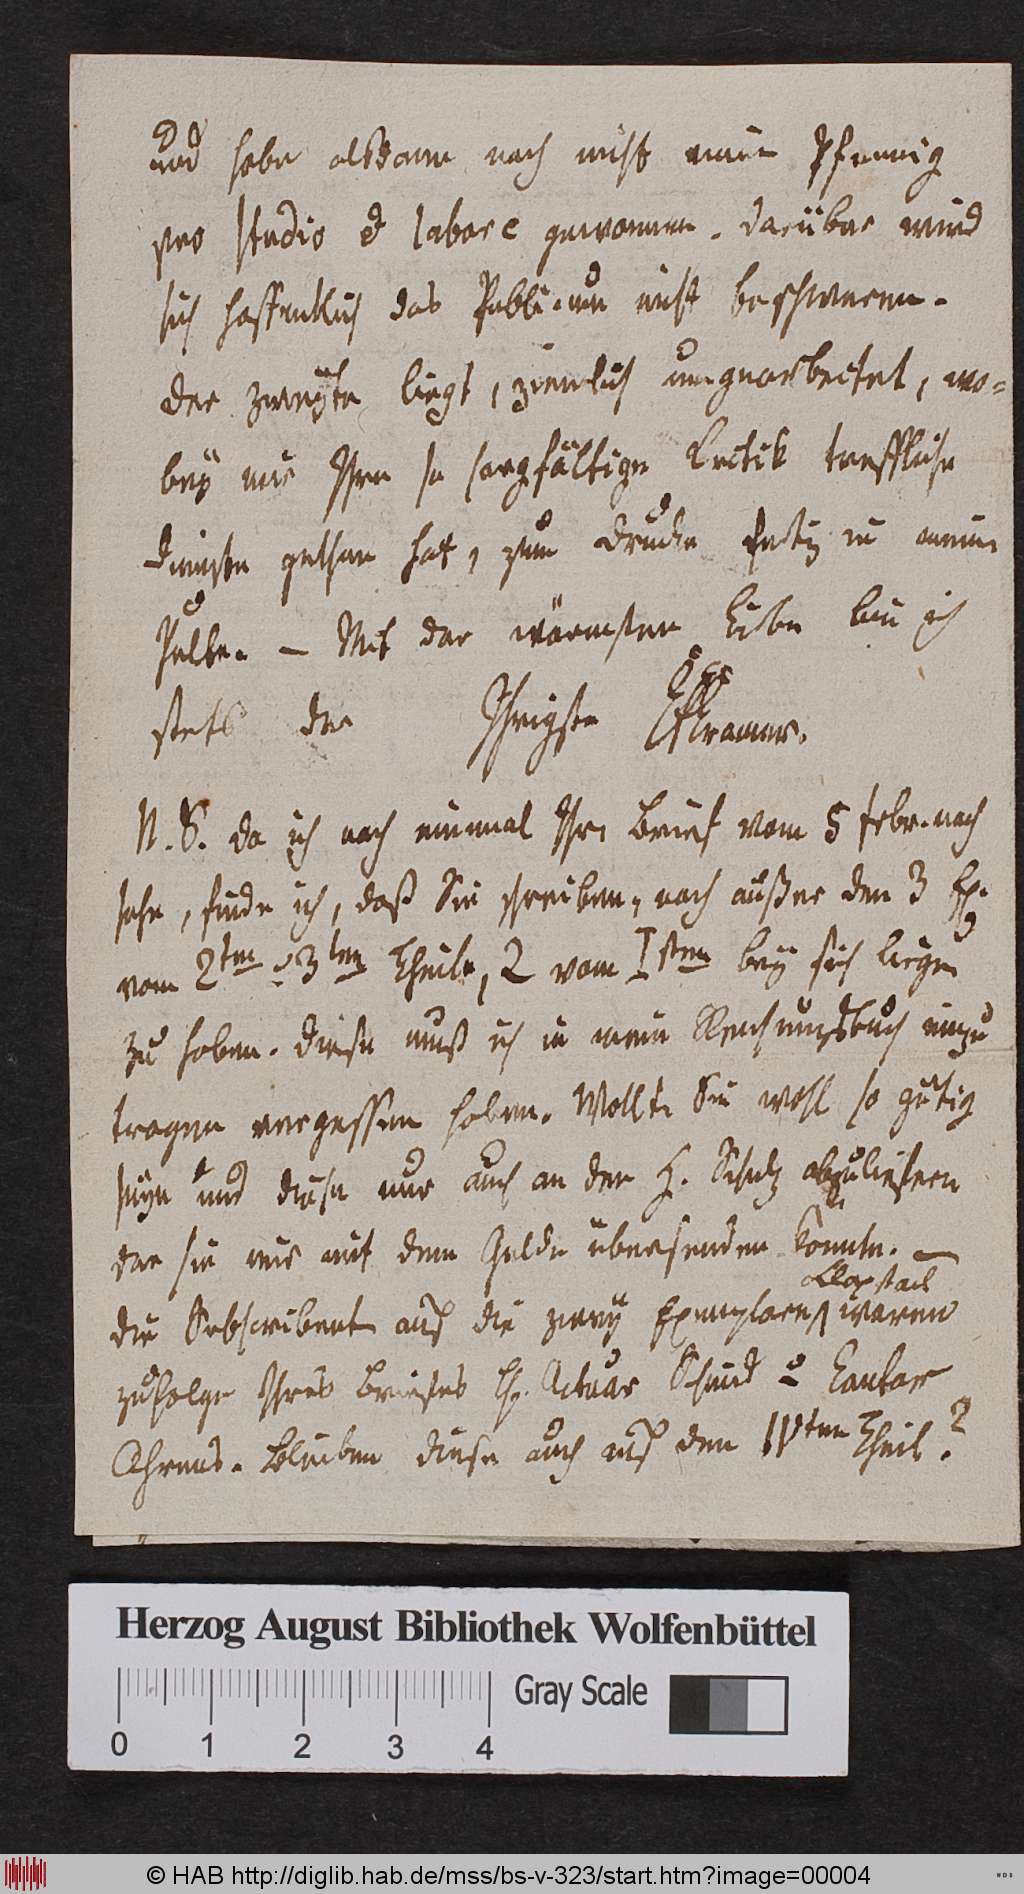 und habe alsdann noch nicht einen Pfennig
pro studio & labore gewonnen. Darüber wird
sich hoffentlich das Publicum nicht beschweren.
Der zweyte liegt, ziemlich umgearbeitet, wo=
bey mir Ihre so sorgfältige Critik treffliche
Dienste gethan hat, zum Drucke fertig in meinem
Pulte. — Mit der wärmsten Liebe bin ich
stets der Ihrigste CFCramer.
N. S. Da ich noch einmal Ihren Brief vom 5 Febr. nach
sehe, finde ich, daß Sie schreiben, noch außer den 3 Ex.
vom 2ten u 3ten Theile, 2 vom Isten bey sich liegen
zu haben. Diese muß ich in mein Rechnungsbuch einzu
tragen vergessen haben. Wollten Sie wohl so gütig
seyn und diese nur auch an den H. Schulz abzuliefern
der sie mir mit dem Gelde übersenden könnte. —
Klopstock
die Subscribenten auf die zwey Exemplare waren
zufolge Ihres Briefes H. Actuar Schmid u Cantor
Ahrens. Bleiben diese auch auf den IVten Theil?
Herzog August Bibliothek Wolfenbüttel
Gray Scale
0 1 2 3 4
© HAB http://diglib.hab.de/mss/bs-v-323/start.htm?image=00004